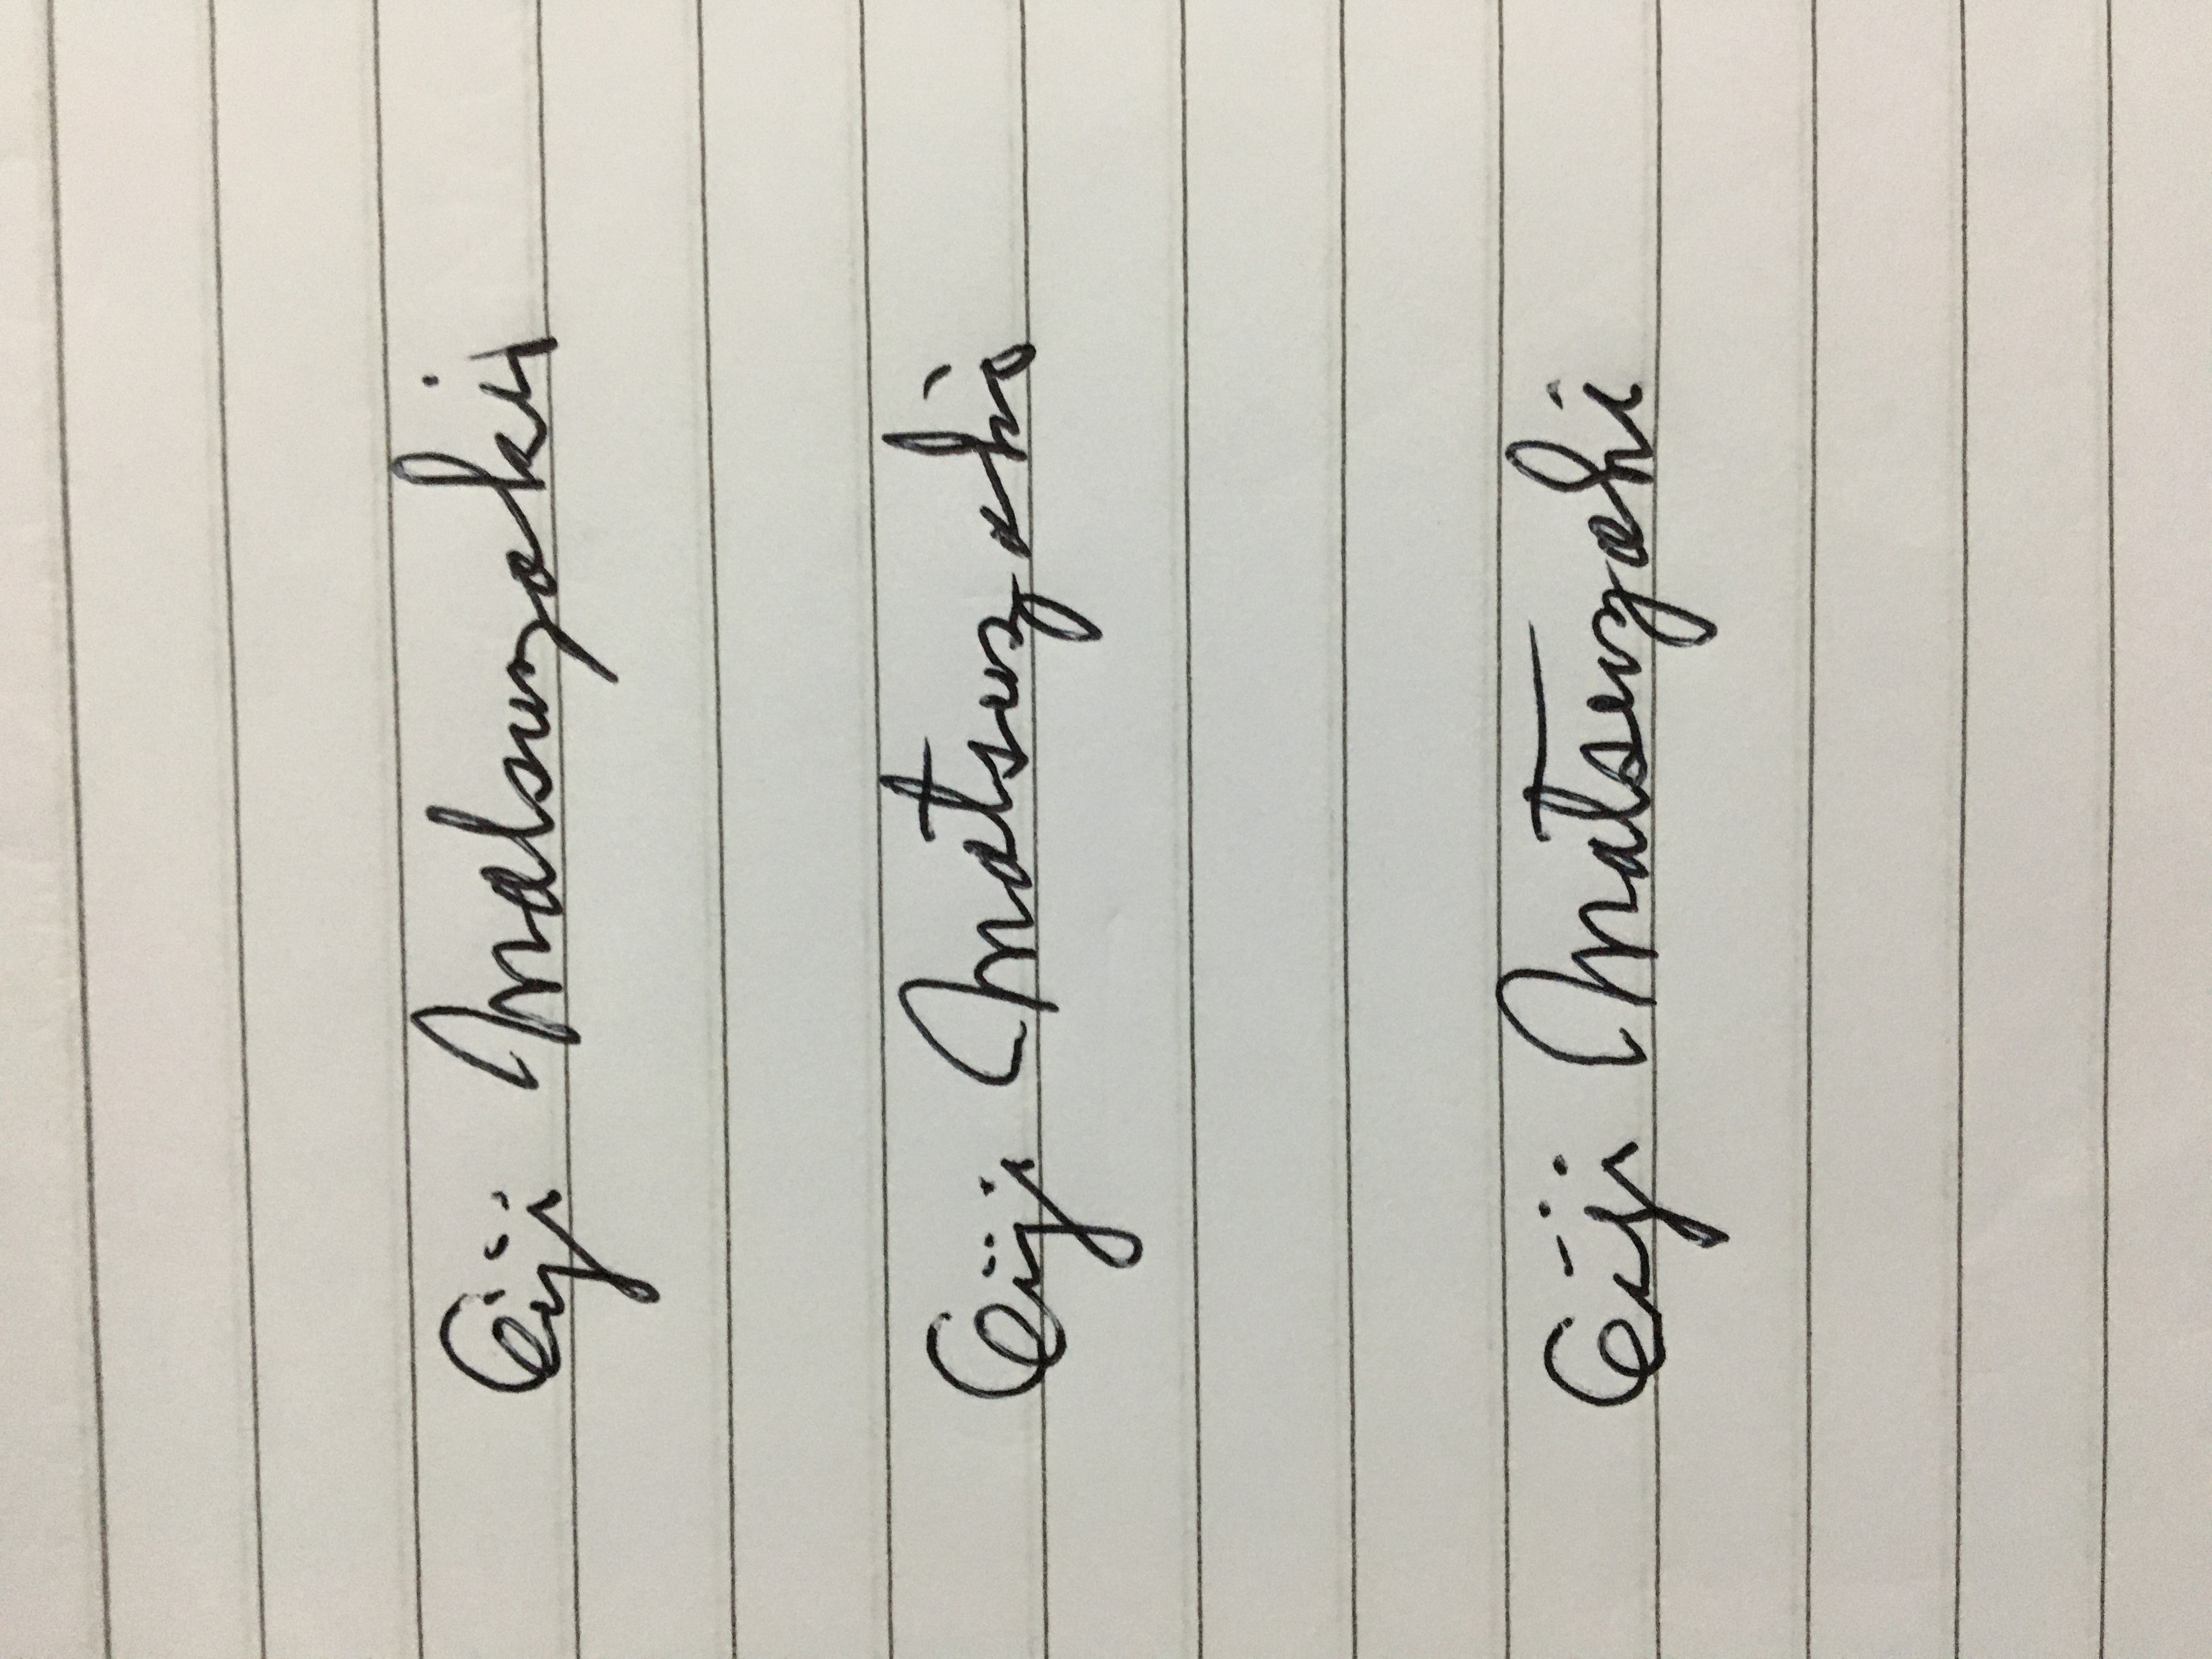 Eiji Matsuzaki
Eiji Matsuzaki
Eiji Matsuzaki